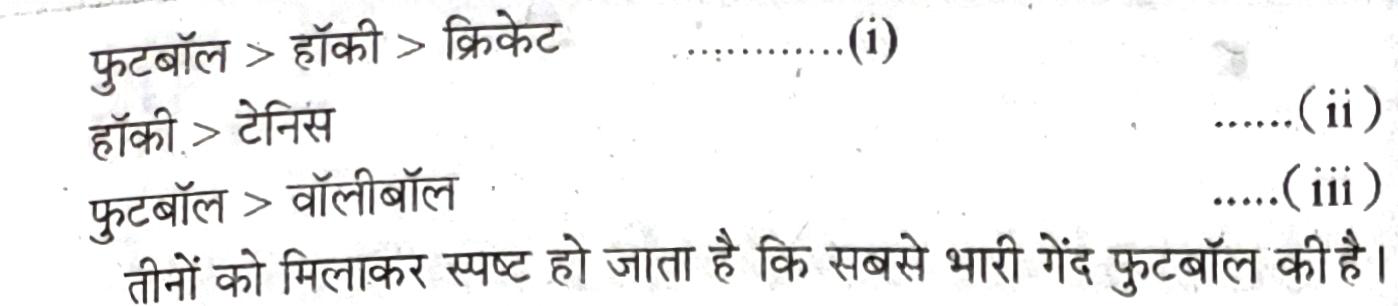 फुटबॉल > हॉकी > क्रिकेट .............(i)
हॉकी > टेनिस ......(ii)
फुटबॉल > वॉलीबॉल .....(iii)
तीनों को मिलाकर स्पष्ट हो जाता है कि सबसे भारी गेंद फुटबॉल की है।